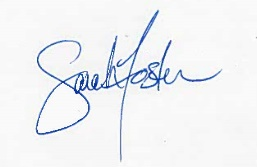 Sarah Foster